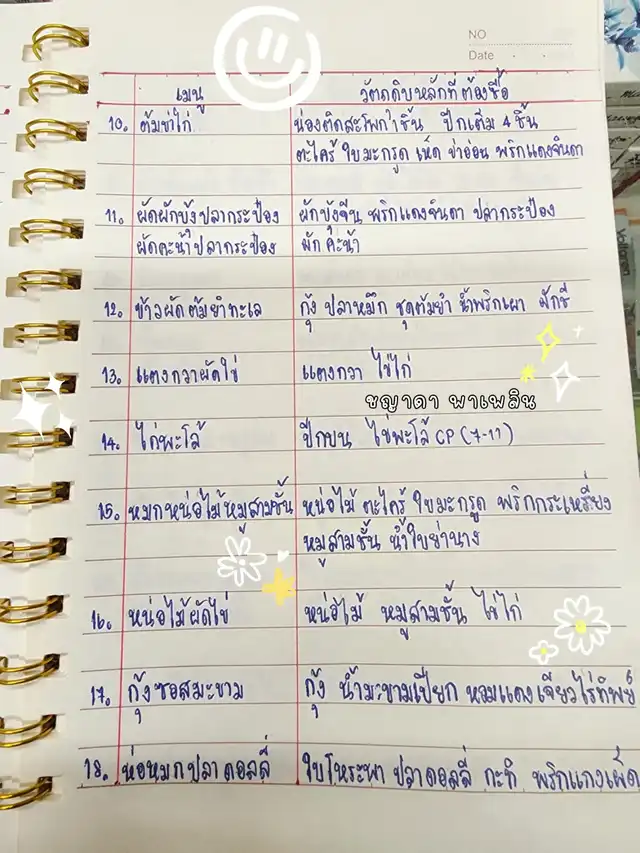 NO
Date
เมนู วัตถุดิบหลักที่ต้องซื้อ
10. ต้มข่าไก่ น่องติดสะโพก 1 ชิ้น ปีกเต็ม 4 ชิ้น
ตะไคร้ ใบมะกรูด เห็ด ข่าอ่อน พริกแดงจินดา
11. ผัดผักบุ้งปลากระป๋อง ผักบุ้งจีน พริกแดงจินดา ปลากระป๋อง
ผัดคะน้าปลากระป๋อง ผักคะน้า
12. ข้าวผัดต้มยำทะเล กุ้ง ปลาหมึก ชุดต้มยำ น้ำพริกเผา ผักชี
13. แตงกวาผัดไข่ แตงกวา ไข่ไก่
ชญาดา พาเพลิน
14. ไก่พะโล้ ปีกบน ไข่พะโล้ CP (7-11)
15. หมกหน่อไม้หมูสามชั้น หน่อไม้ ตะไคร้ ใบมะกรูด พริกกระเหรี่ยง
หมูสามชั้น น้ำใบย่านาง
16. หน่อไม้ผัดไข่ หน่อไม้ หมูสามชั้น ไข่ไก่
17. กุ้งซอสมะขาม กุ้ง น้ำมะขามเปียก หอมแดงเจียวไร่ทิพย์
18. ห่อหมกปลาดอลลี่ ใบโหระพา ปลาดอลลี่ กะทิ พริกแกงเผ็ด